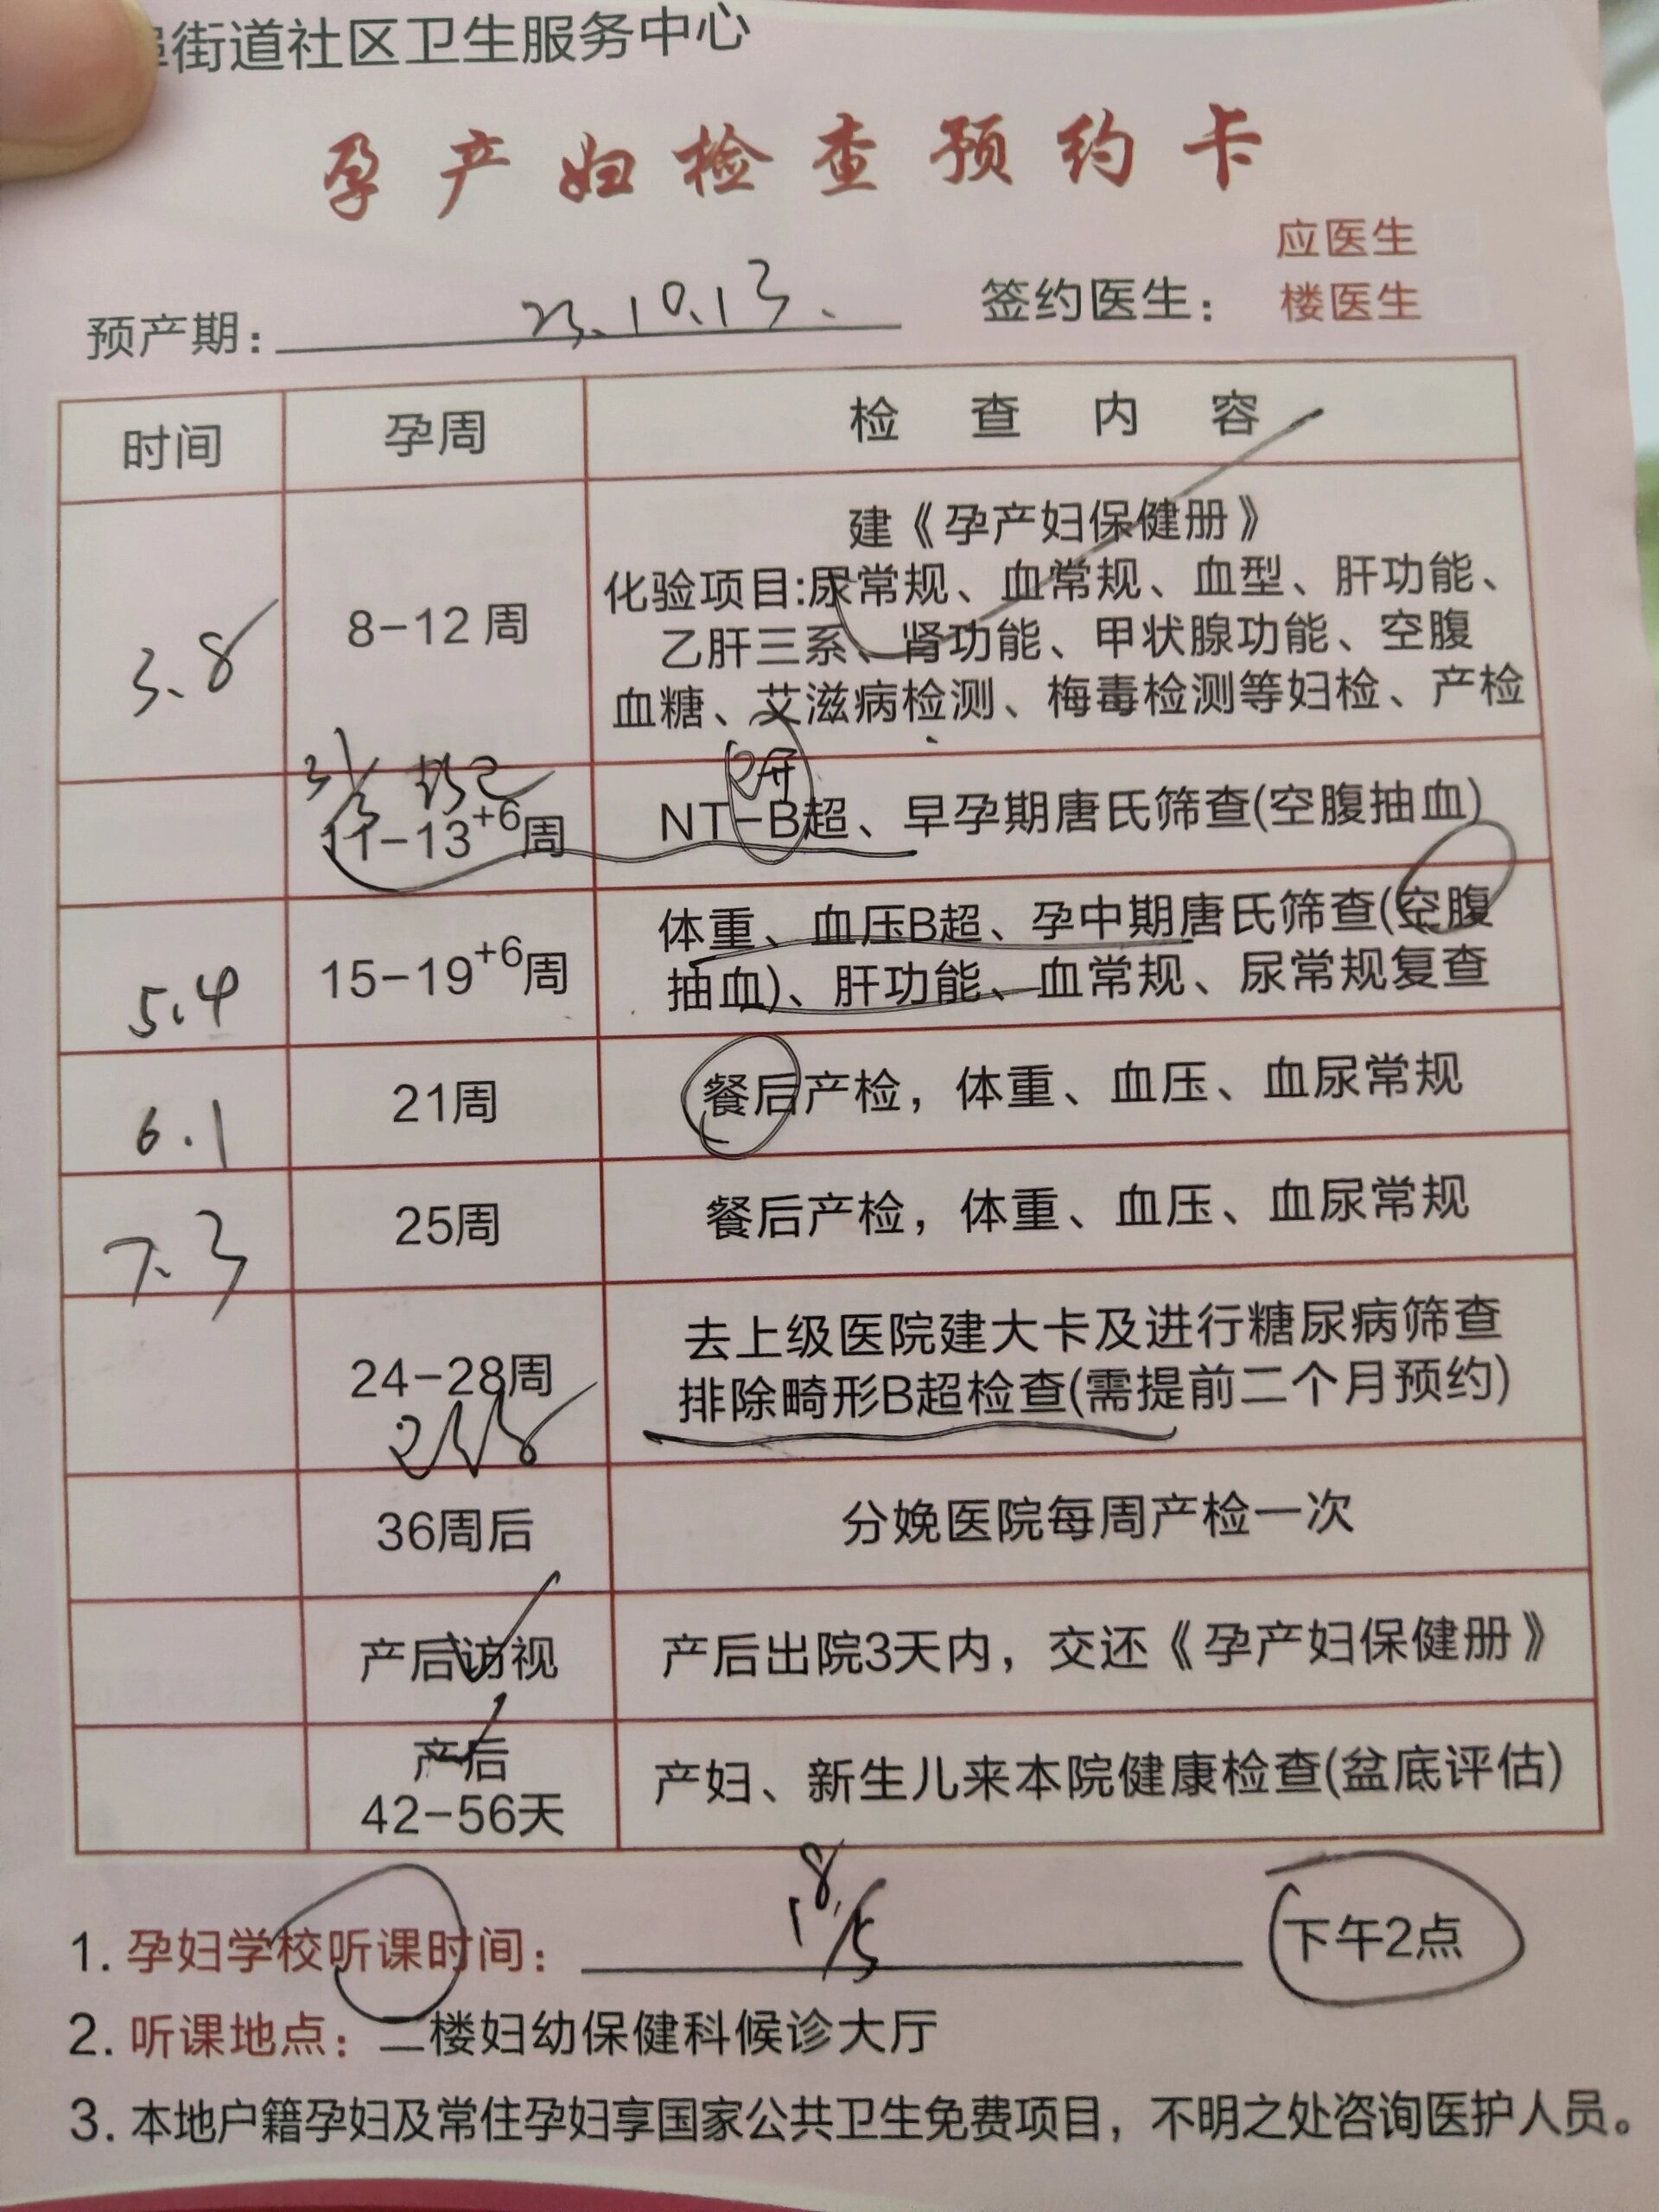 街道社区卫生服务中心
孕产妇检查预约卡
应医生
预产期： 23.10.13. 签约医生： 楼医生
时间 孕周 检查内容
建《孕产妇保健册》
化验项目:尿常规、血常规、血型、肝功能、
3.8 8-12周 乙肝三系、肾功能、甲状腺功能、空腹
血糖、艾滋病检测、梅毒检测等妇检、产检
11-13+6周 NT-B超、早孕期唐氏筛查(空腹抽血)
体重、血压B超、孕中期唐氏筛查(空腹
5.4 15-19+6周 抽血)、肝功能、血常规、尿常规复查
6.1 21周 餐后产检，体重、血压、血尿常规
7.3 25周 餐后产检，体重、血压、血尿常规
去上级医院建大卡及进行糖尿病筛查
24-28周 排除畸形B超检查(需提前二个月预约)
36周后 分娩医院每周产检一次
产后访视 产后出院3天内，交还《孕产妇保健册》
产后
42-56天 产妇、新生儿来本院健康检查(盆底评估)
1. 孕妇学校听课时间： 18/5 下午2点
2. 听课地点：二楼妇幼保健科候诊大厅
3. 本地户籍孕妇及常住孕妇享国家公共卫生免费项目，不明之处咨询医护人员。